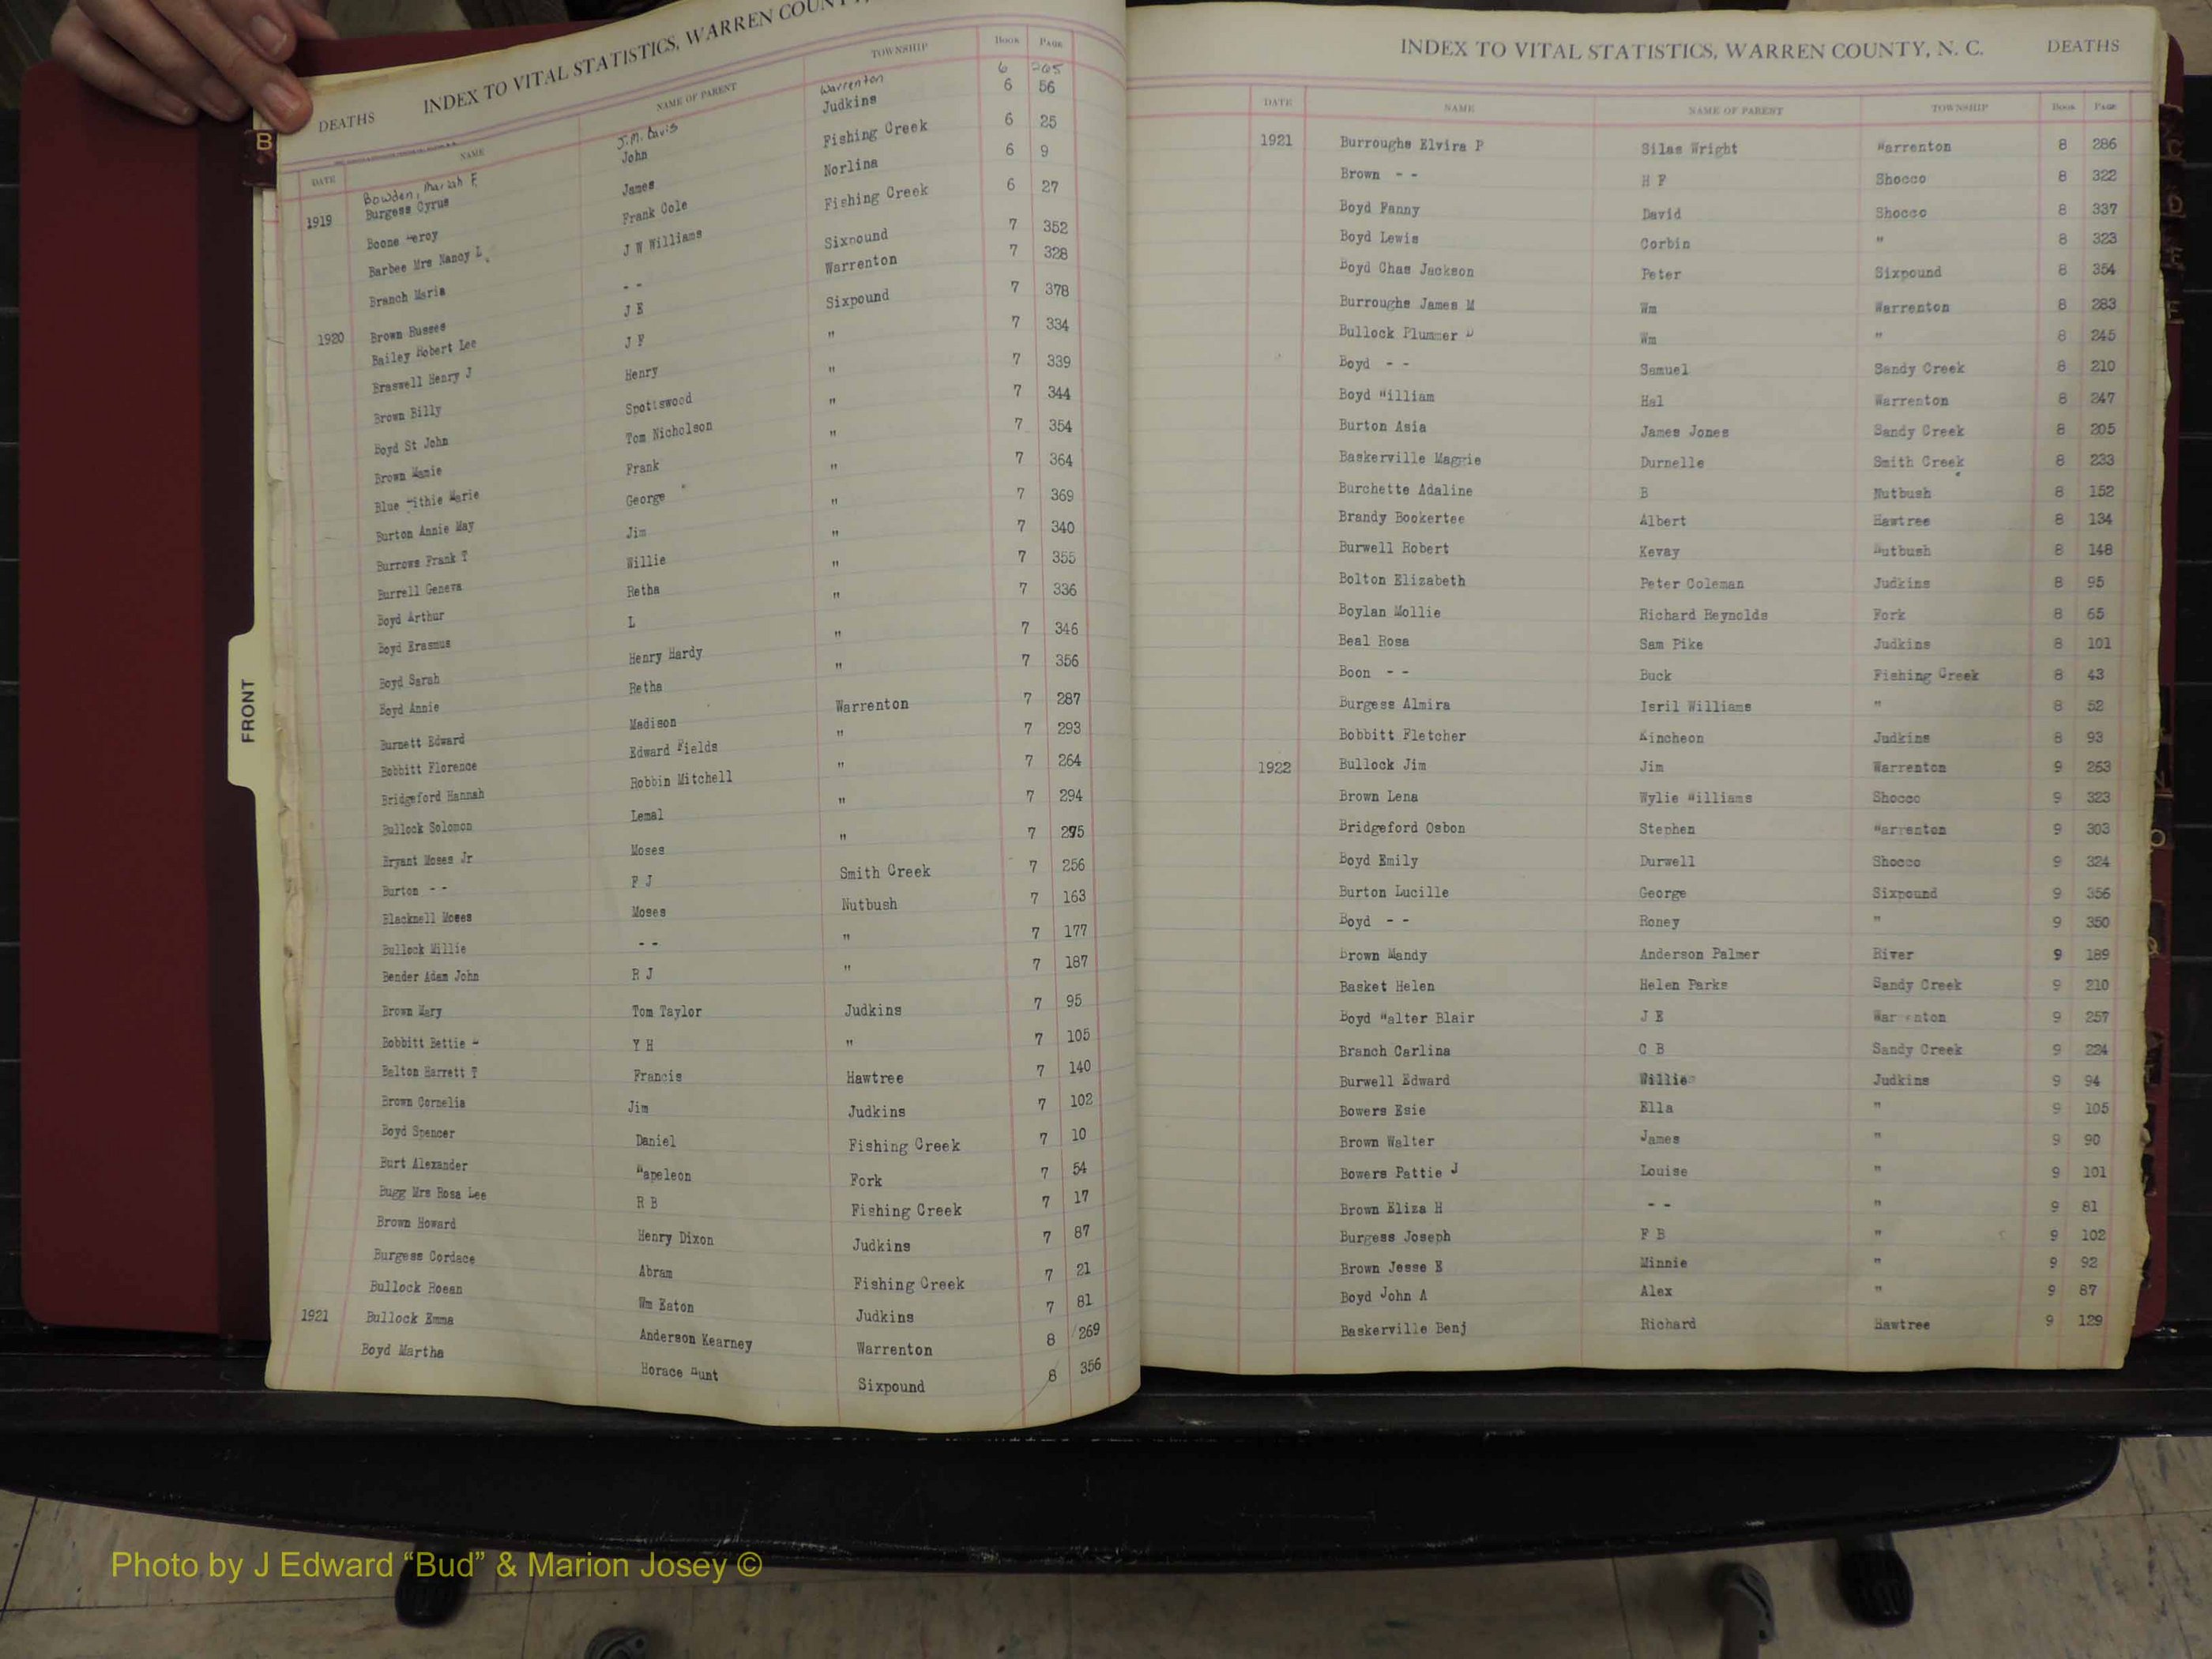 DEATHS INDEX TO VITAL STATISTICS, WARREN COUNTY,
DATE NAME NAME OF PARENT TOWNSHIP BOOK PAGE
Bowden, Mariah F. J.M. Davis Warrenton 6 265
1919 Burgess Cyrus John Judkins 6 56
Boone Leroy James Fishing Creek 6 25
Barbee Mrs Nancy L Frank Cole Norlina 6 9
Branch Maria J W Williams Fishing Creek 6 27
1920 Brown Russee - - Sixpound 7 352
Bailey Robert Lee J E Warrenton 7 328
Braswell Henry J J F Sixpound 7 378
Brown Billy Henry " 7 334
Boyd St John Spotiswood " 7 339
Brown Mamie Tom Nicholson " 7 344
Blue Marie Frank " 7 354
Burton Annie May George " 7 364
Burrows Frank T Jim " 7 369
Burrell Geneva Willie " 7 340
Boyd Arthur Retha " 7 355
Boyd Erasmus L " 7 336
Boyd Sarah Henry Hardy " 7 346
Boyd Annie Retha " 7 356
Burnett Edward Madison Warrenton 7 287
Bobbitt Florence Edward Fields " 7 293
Bridgeford Hannah Robbin Mitchell " 7 264
Bullock Solomon Lemal " 7 294
Bryant Moses Jr Moses " 7 295
Burton - - F J Smith Creek 7 256
Blacknell Moses Moses Nutbush 7 163
Bullock Millie - - " 7 177
Bender Adam John R J " 7 187
Brown Mary Tom Taylor Judkins 7 95
Bobbitt Bettie Y H " 7 105
Balton Harrett T Francis Hawtree 7 140
Brown Cornelia Jim Judkins 7 102
Boyd Spencer Daniel Fishing Creek 7 10
Burt Alexander Napeleon Fork 7 54
Bugg Mrs Rosa Lee R B Fishing Creek 7 17
Brown Howard Henry Dixon Judkins 7 87
Burgess Cordace Abram Fishing Creek 7 21
Bullock Roean Wm Eaton Judkins 7 81
1921 Bullock Emma Anderson Kearney Warrenton 8 269
Boyd Martha Horace Hunt Sixpound 8 356
B
FRONT
INDEX TO VITAL STATISTICS, WARREN COUNTY, N. C. DEATHS
DATE NAME NAME OF PARENT TOWNSHIP BOOK PAGE
1921 Burroughs Elvira P Silas Wright Warrenton 8 286
Brown - - H F Shocco 8 322
Boyd Fanny David Shocco 8 337
Boyd Lewis Corbin " 8 323
Boyd Chas Jackson Peter Sixpound 8 354
Burroughs James M Wm Warrenton 8 283
Bullock Plummer D Wm " 8 245
Boyd - - Samuel Sandy Creek 8 210
Boyd William Hal Warrenton 8 247
Burton Asia James Jones Sandy Creek 8 205
Baskerville Maggie Durnelle Smith Creek 8 233
Burchette Adaline B Nutbush 8 152
Brandy Bookertee Albert Hawtree 8 134
Burwell Robert Kevay Nutbush 8 148
Bolton Elizabeth Peter Coleman Judkins 8 95
Boylan Mollie Richard Reynolds Fork 8 65
Beal Rosa Sam Pike Judkins 8 101
Boon - - Buck Fishing Creek 8 43
Burgess Almira Isril Williams " 8 52
Bobbitt Fletcher Kincheon Judkins 8 93
1922 Bullock Jim Jim Warrenton 9 263
Brown Lena Wylie Williams Shocco 9 323
Bridgeford Osbon Stephen Warrenton 9 303
Boyd Emily Durwell Shocco 9 324
Burton Lucille George Sixpound 9 356
Boyd - - Roney " 9 350
Brown Mandy Anderson Palmer River 9 189
Basket Helen Helen Parks Sandy Creek 9 210
Boyd Walter Blair J E Warrenton 9 257
Branch Carlina C B Sandy Creek 9 224
Burwell Edward Willie Judkins 9 94
Bowers Esie Ella " 9 105
Brown Walter James " 9 90
Bowers Pattie J Louise " 9 101
Brown Eliza H - - " 9 81
Burgess Joseph F B " 9 102
Brown Jesse E Minnie " 9 92
Boyd John A Alex " 9 87
Baskerville Benj Richard Hawtree 9 129
Photo by J Edward “Bud” & Marion Josey ©